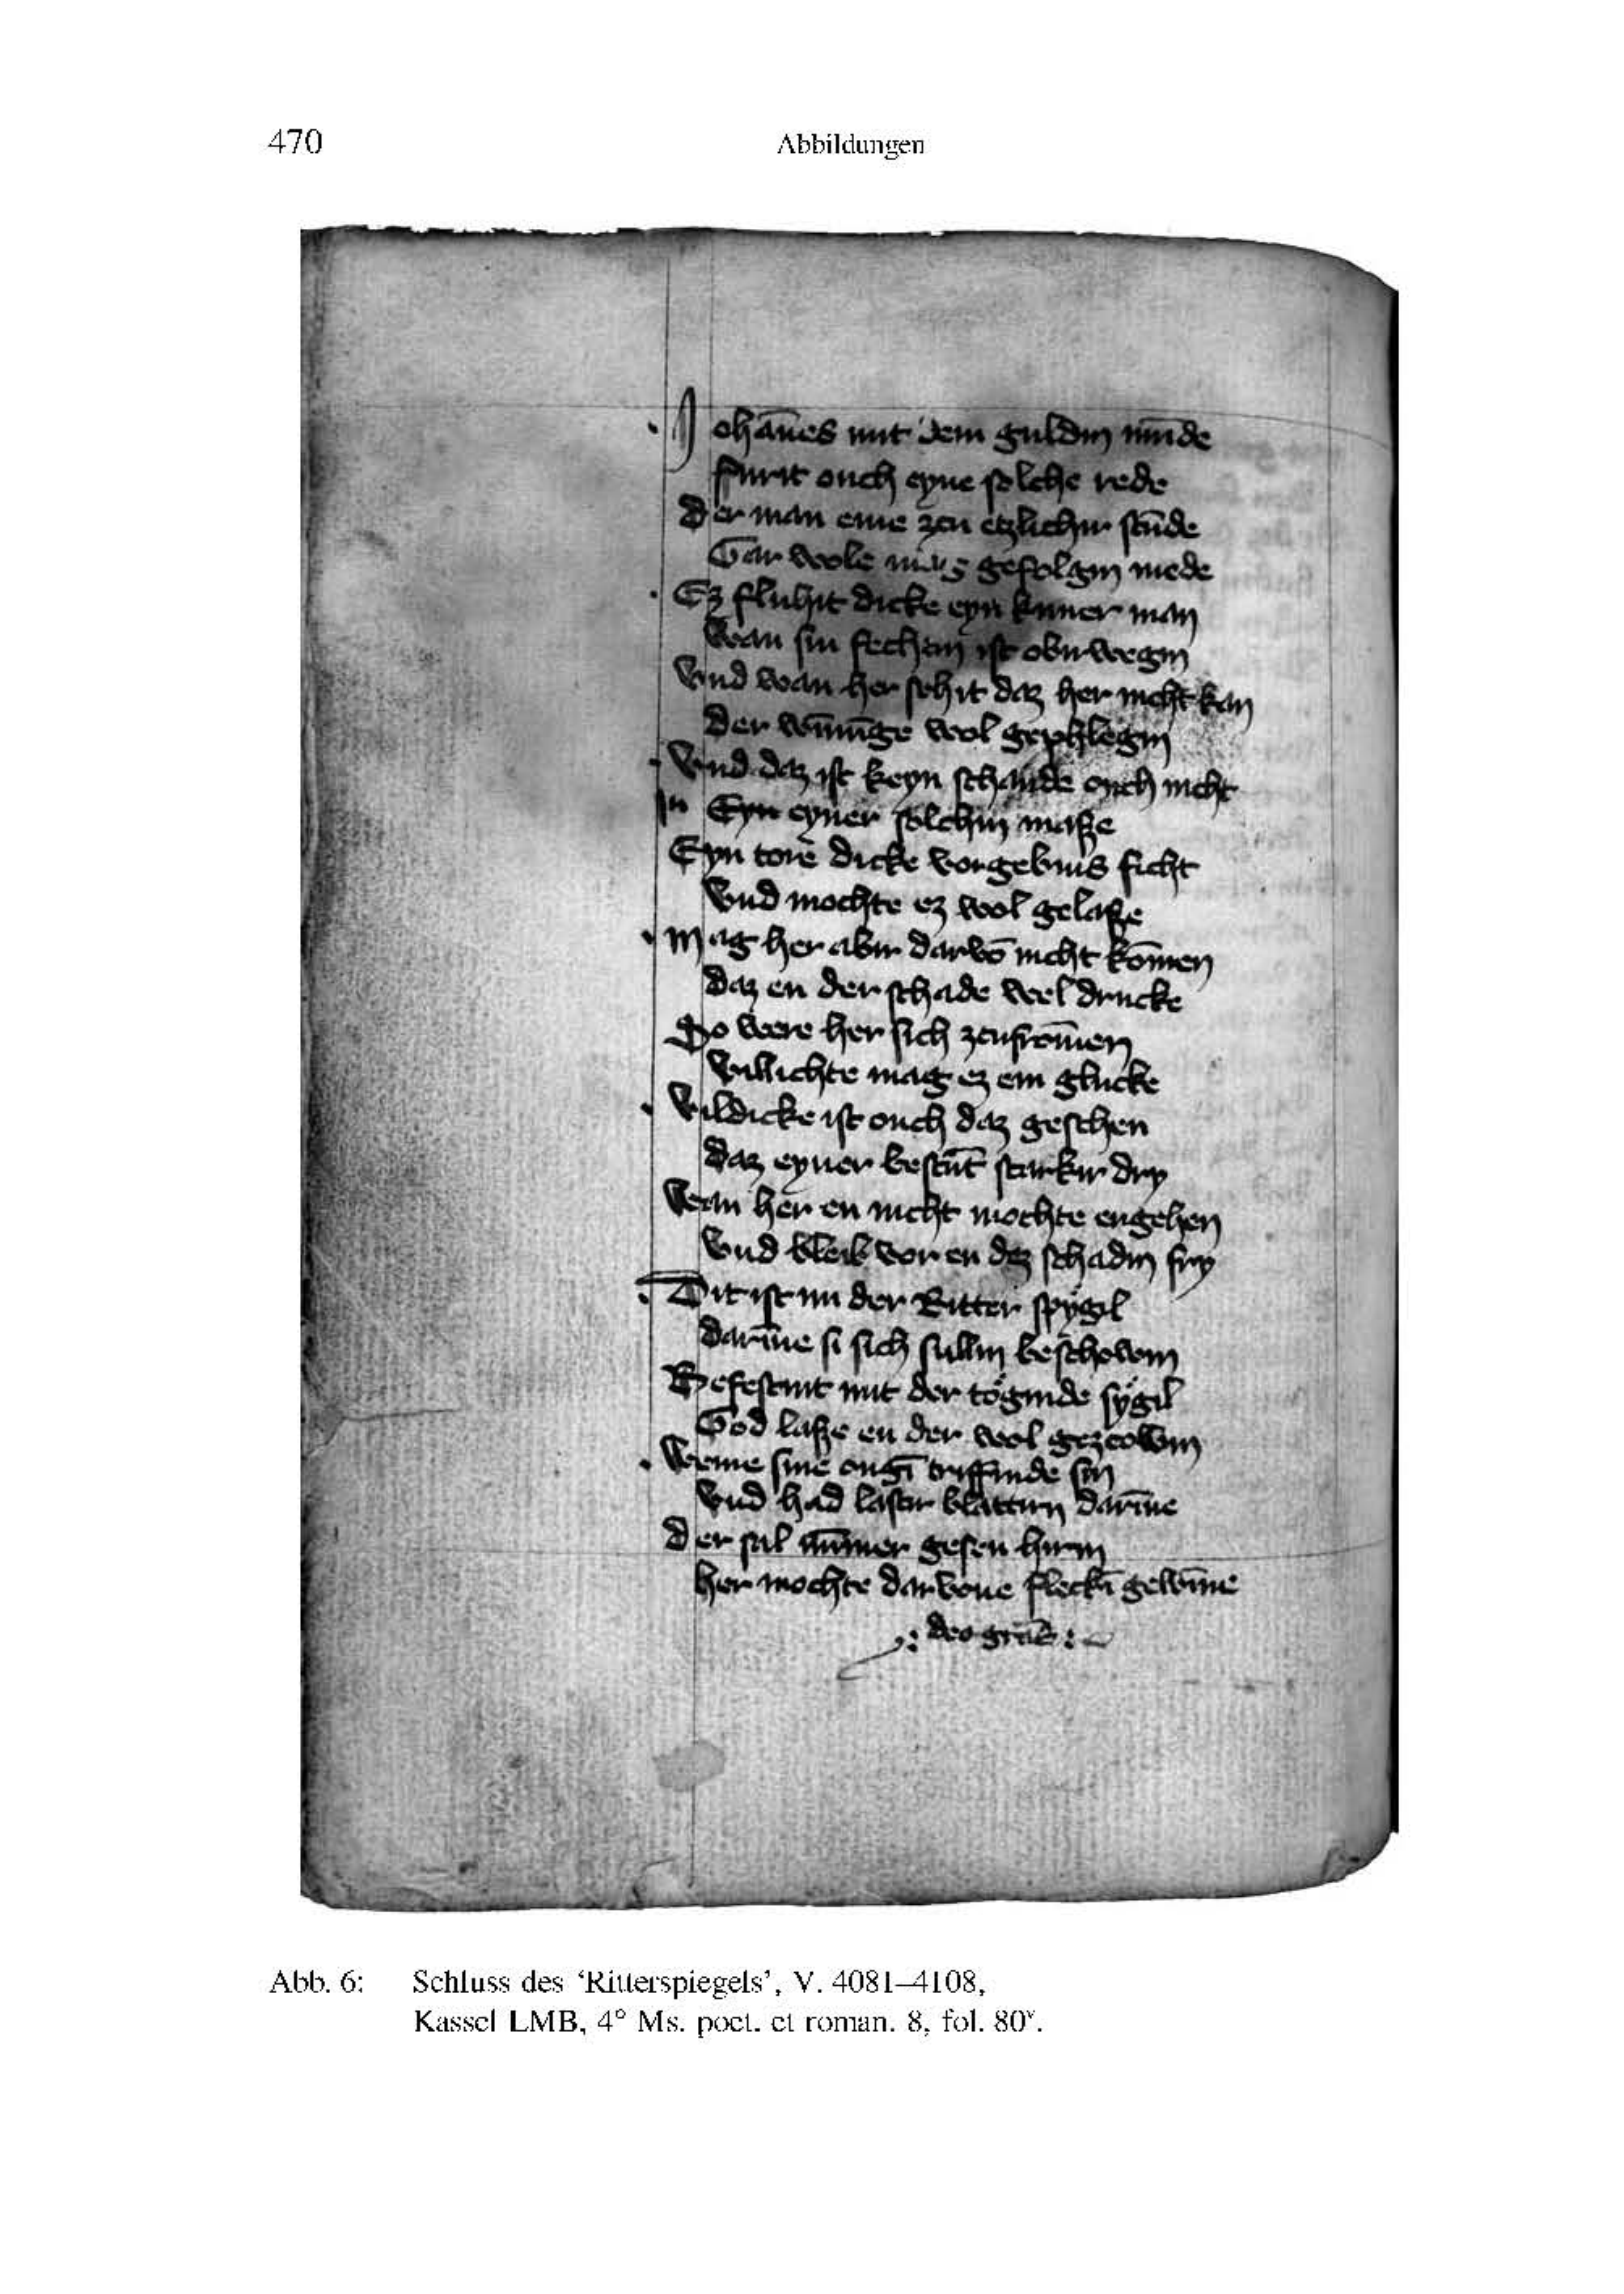 470
Abbildungen
Johān̄es mit dem guldin mūde
furit ouch eyne solche rede
Der man eme zcu etzlichir stūde
Gar wole mag gefolgin mede
Ez fluhit dicke eyn kuner man
wan sin fechtin ist obir wegin
Vnd wan her sehit daz her nicht kan
der wīnūge wol gephlegin
Vnd daz ist keyn schande ouch nicht
In Eyn eyner solchin masze
Eyn tore dicke vorgebins ficht
vnd mochte ez wol gelasze
Mag her abir darvō nicht kōmen
daz en der schade wel drucke
So were her sich zcufrōmen
villichte mag ez em glucke
Vildicke ist ouch daz geschen
daz eyner bestūt starkir dry
Wan her en nicht mochte engehen
vnd bleib vor en dez schadin fry
Dit ist nu der Ritter spygil
darīne si sich sullin beschowin
Befestint mit der toginde sygil
God lasze en der wol gezcowin
Weme sine ougī triffinde sin
vnd had lastir blattirn darīne
Der sal nūmer gesen hirin
her mochte darvone fleckī gewīne
deo grās
Abb. 6: Schluss des ‘Ritterspiegels’, V. 4081–4108,
Kassel LMB, 4° Ms. poet. et roman. 8, fol. 80ᵛ.